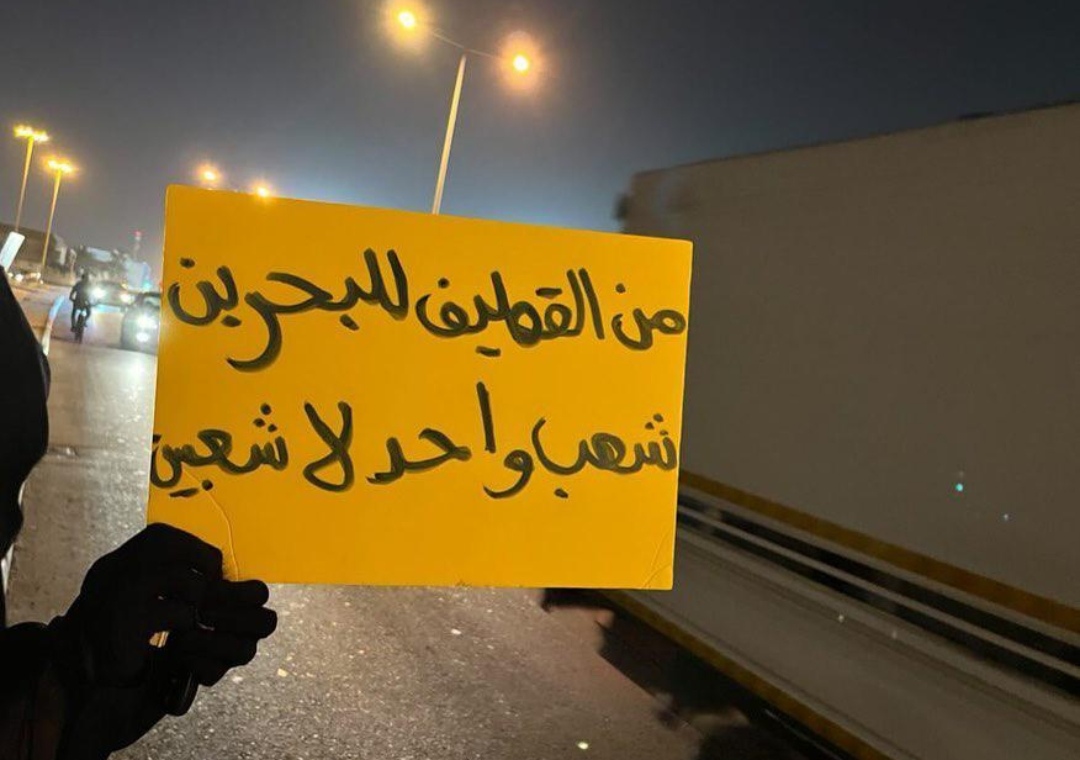 من القطيف للبحرين
شعب واحد لا شعبين